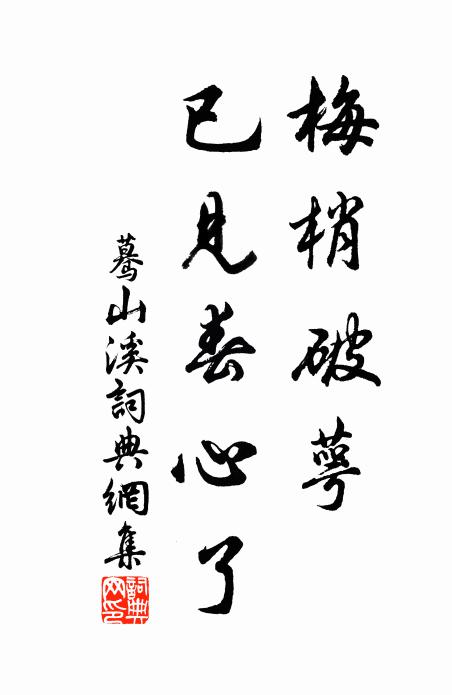 梅梢破萼
已見春心了
驀山溪詞典網集
詞典网印